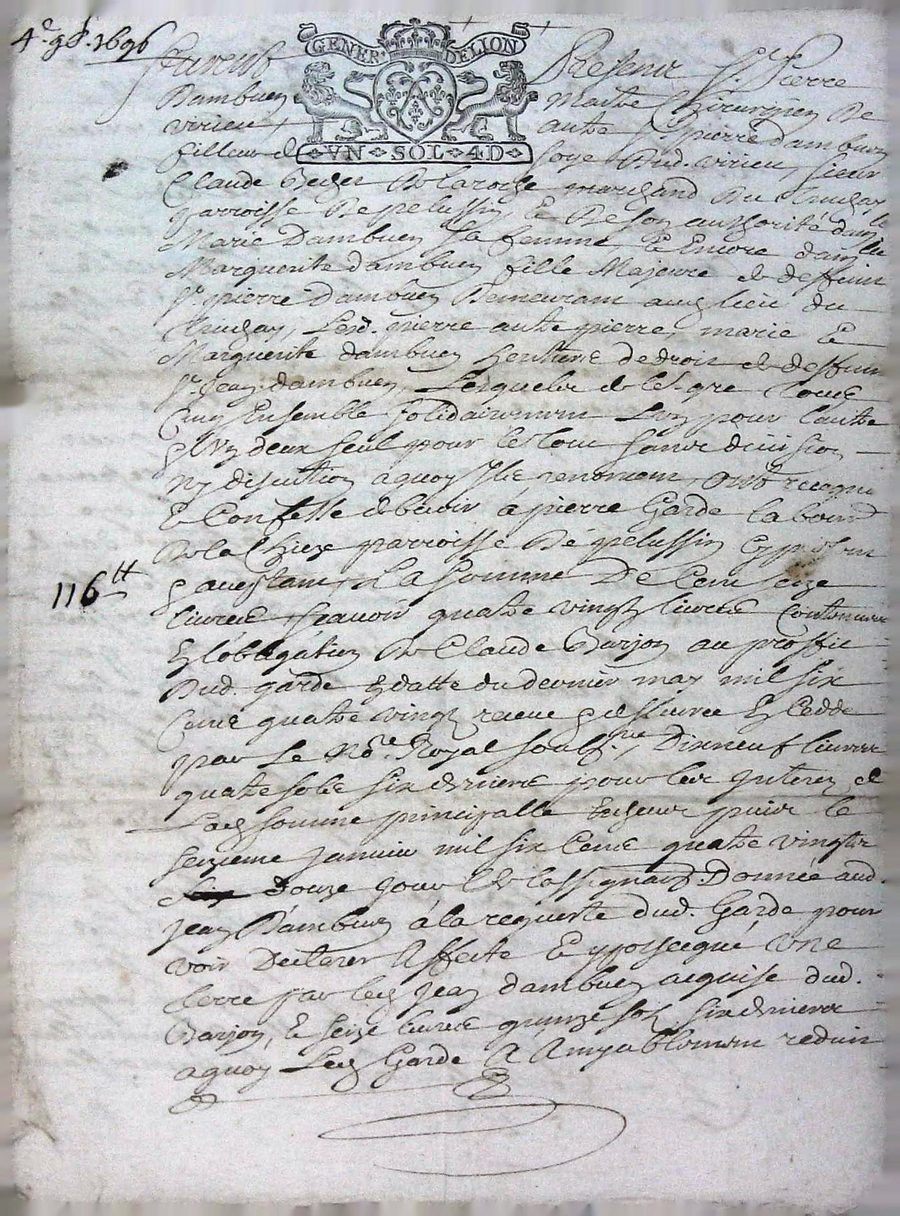 4e 9b. 1696
GENER DELION
VN SOL 4D
Furent Present Sr. Pierre
Dambuen Maitre Chirurgien De
Virieu, autre pierre dambuen
tilleur de soye Dud. virieu, sieur
Claude Beges De laroche marchand Du
parroisse De pelussin, & De son authorité
Marie Dambuen sa femme & Encore dam
Marguerite dambuen fille Majeure de deffunt
Sr. pierre Dambuen Demeurant audit lieu du
Lesd. pierre autre pierre marie &
Marguerite dambuen de droit de deffunt
Sr. Jean dambuen, Lesquels de leur gre tous
Cinq Ensemble solidairement L'un pour l'autre
& un deux seul pour le tout sans division
Ny discution a quoy Ils renoncent, ont recogneu
& Confessé debvoir à pierre Garde
De la Chieze parroisse De pelussin Cy present
& acceptant, La somme De Cent seize
116 tt
livres scavoir quatre vingt livres Contenues
En l'obligation De Claude Barjon au proffit
Dud. garde En datte du dernier may mil six
Cent quatre vingt receue &
par Le Nore. Royal soubs.ne, Dixneuf livres
quatre sols six deniers pour les Interez de
Lad. somme principalle puis le
seizieme Janvier mil six Cent quatre vingtz
Douze jour De l'assignaon. Donnée aud.
Jean Dambuen à la requeste dud. Garde pour
voir Declarer Affecté & yppotecqué une
Terre par led. Jean dambuen acquise dud.
Barjon, & seize livres quinze sols six deniers
a quoy Led. Garde A Amyablement reduit